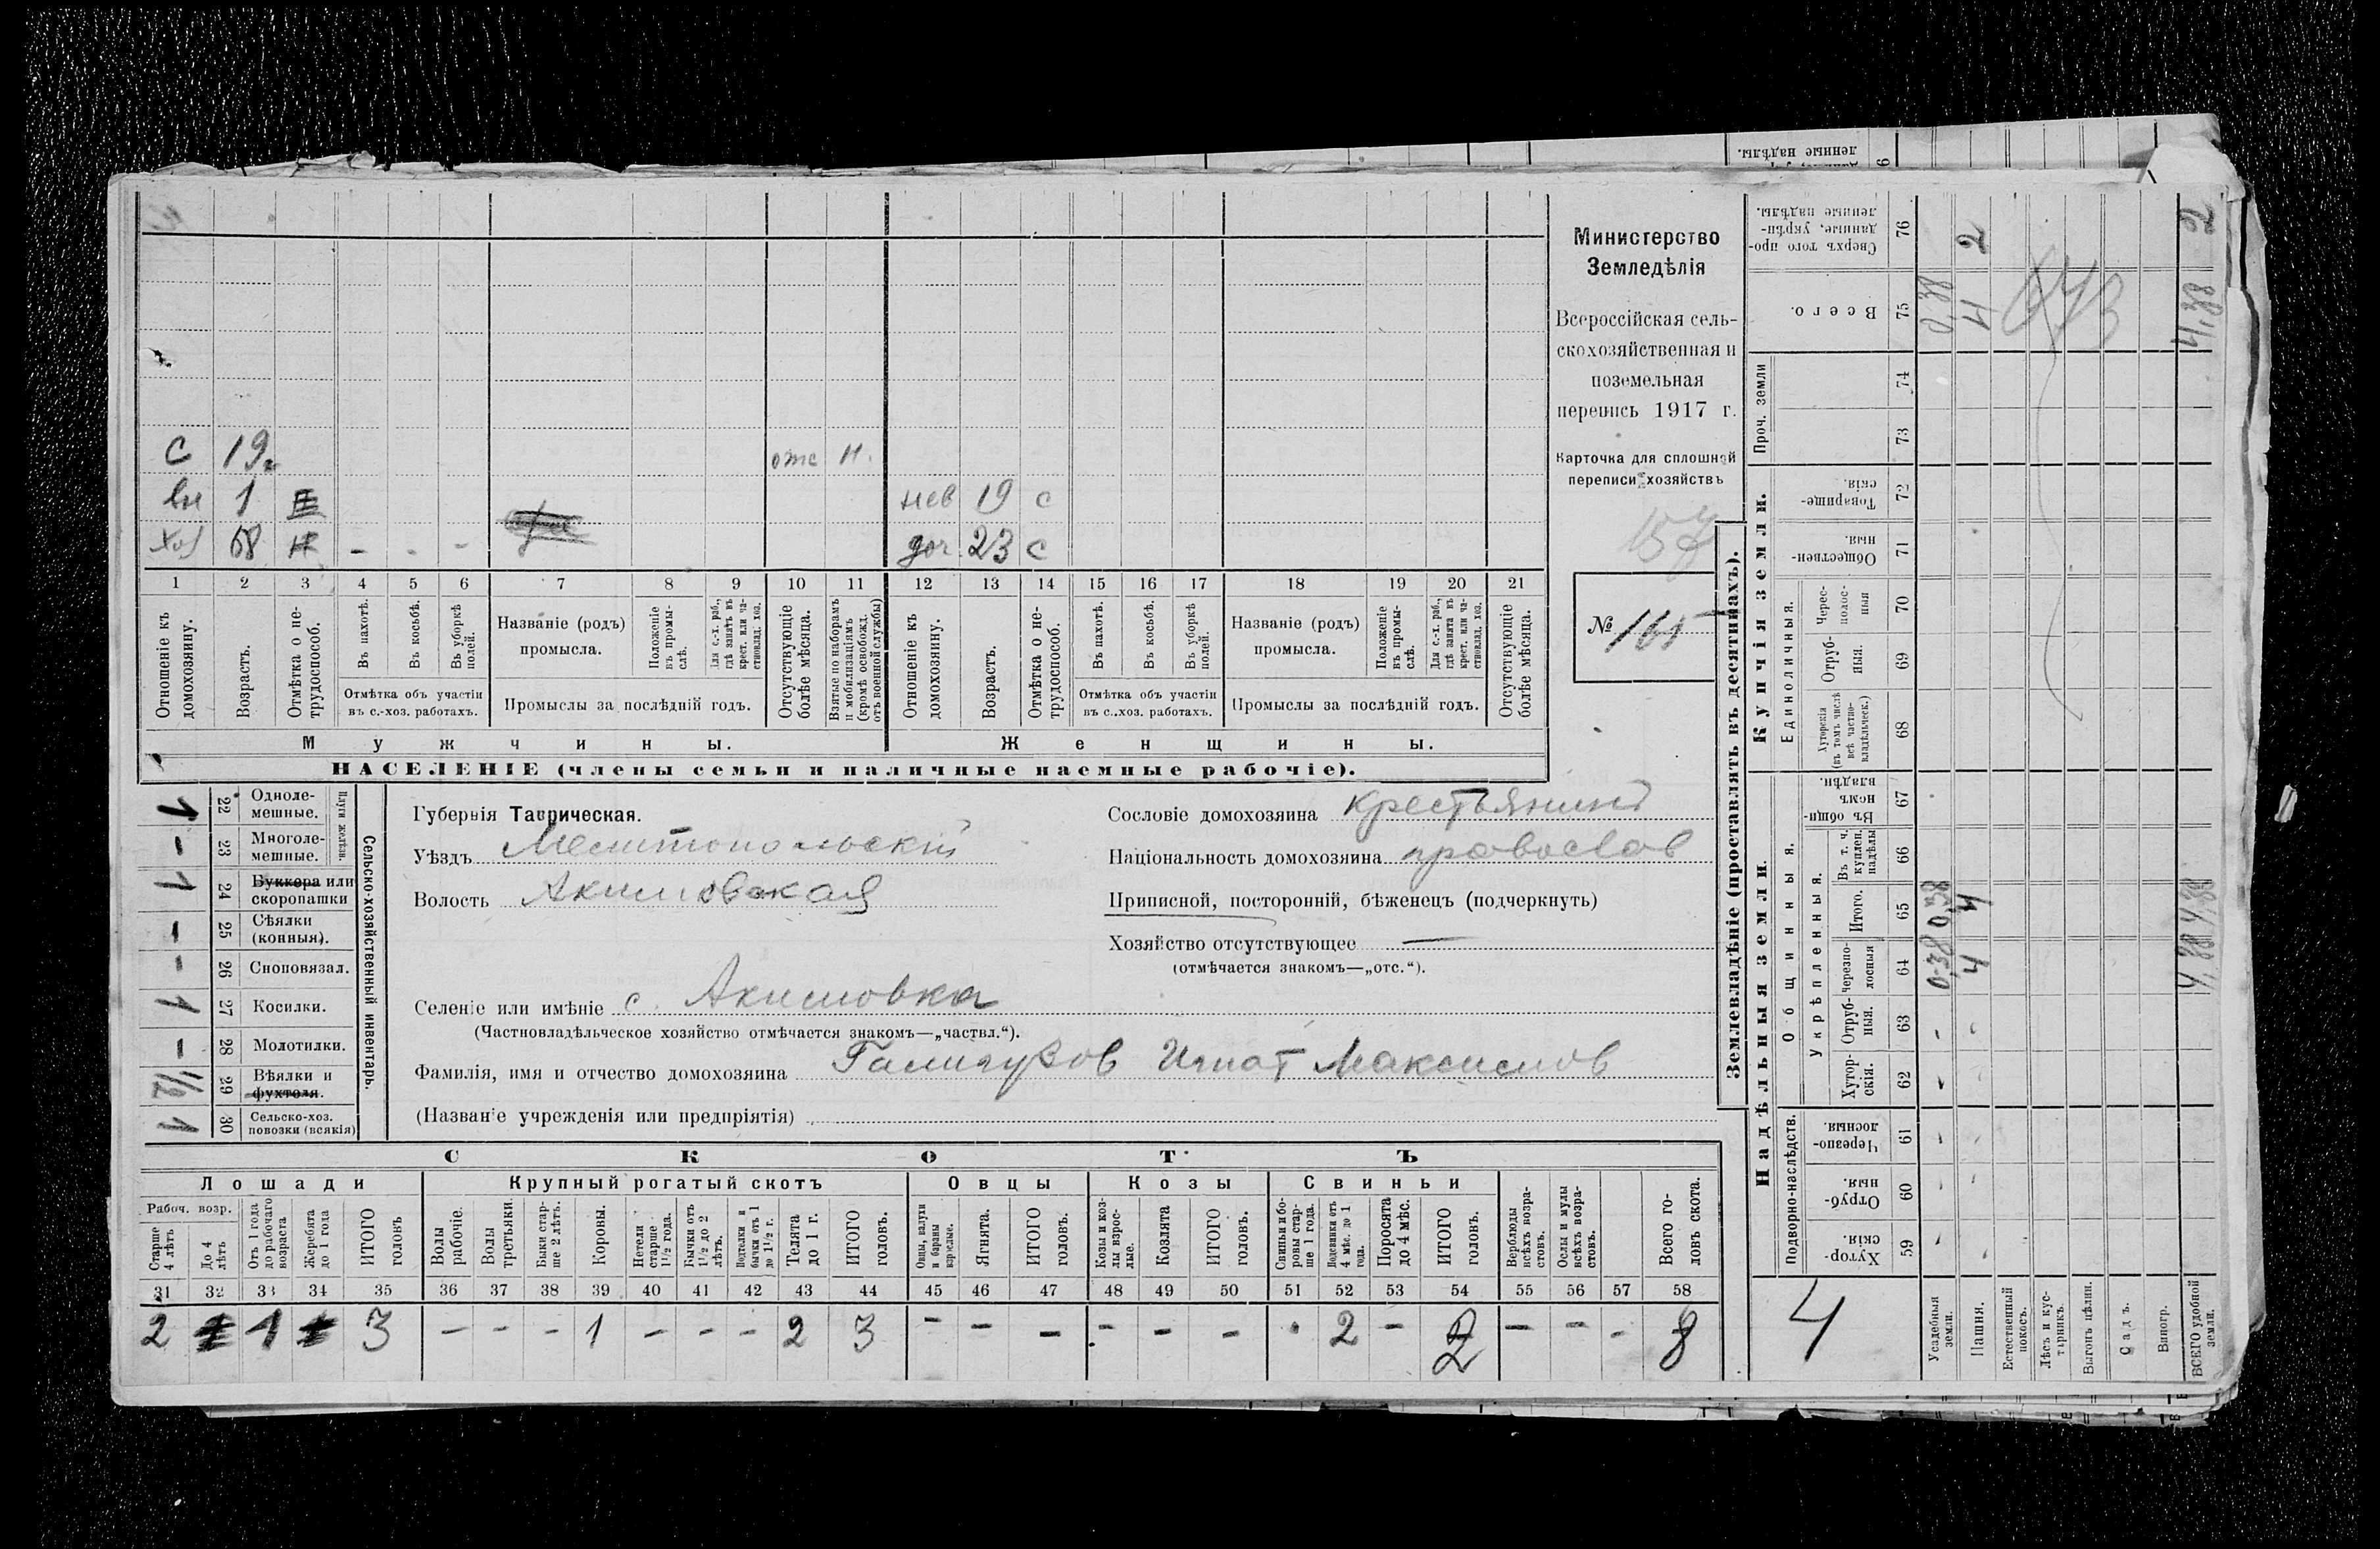 Министерство
Земледѣлія
Всероссійская сель-
скохозяйственная и
поземельная
перепись 1917 г.
Карточка для сплошной
переписи хозяйствъ
157
№ 165
С 19 отс н.
вн 1 нев 19 с
хоз 68 - - - доч 23 с
1 2 3 4 5 6 7 8 9 10 11 12 13 14 15 16 17 18 19 20 21
Отношеніе къ домохозяину.
Возрастъ.
Отмѣтка о не-трудоспособ.
Въ пахотѣ.
Въ косьбѣ.
Въ уборкѣ полей.
Отмѣтка объ участіи
въ с.-хоз. работахъ.
Названіе (родъ)
промысла.
Положеніе въ промы-слѣ.
Для с.-х. раб., гдѣ занятъ въ крест. или ча-стновлад. хоз.
Промыслы за послѣдній годъ.
Отсутствующіе болѣе мѣсяца.
Взятые по наборамъ и мобилизаціямъ (кромѣ освобожд. отъ военной службы)
Отношеніе къ домохозяину.
Возрастъ.
Отмѣтка о не-трудоспособ.
Въ пахотѣ.
Въ косьбѣ.
Въ уборкѣ полей.
Отмѣтка объ участіи
въ с..хоз. работахъ.
Названіе (родъ)
промысла.
Положеніе въ промы-слѣ.
Для с.-х. раб., гдѣ занята въ крест. или ча-стновлад. хоз.
Промыслы за послѣдній годъ.
Отсутствующіе болѣе мѣсяца.
Мужчины.
Женщины.
НАСЕЛЕНІЕ (члены семьи и наличные наемные рабочіе).
Сельско-хозяйственный инвентарь.
Плуги желѣзн.
1 22 Одноле-мешные.
- 23 Многоле-мешные.
1 24 Буккера или скоропашки
- 25 Сѣялки (конныя).
- 26 Сноповязал.
1 27 Косилки.
- 28 Молотилки.
29 Вѣялки и фухтоля.
1 30 Сельско-хоз. повозки (всякія)
Губернія Таврическая.
Уѣздъ Мелитопольскій
Волость Акимовская
Селеніе или имѣніе с. Акимовка
(Частновладѣльческое хозяйство отмѣчается знакомъ—„частвл.“).
Фамилія, имя и отчество домохозяина Игнат Максимов
(Названіе учрежденія или предпріятія)
Сословіе домохозяина крестьянинъ
Національность домохозяина православ
Приписной, посторонній, бѣженецъ (подчеркнуть)
Хозяйство отсутствующее —
(отмѣчается знакомъ—„отс.“).
СКОТЪ
Лошади
Крупный рогатый скотъ
Овцы
Козы
Свиньи
Рабоч. возр.
Старше 4 лѣтъ
До 4 лѣтъ
Отъ 1 года до рабочаго возраста
Жеребята до 1 года
ИТОГО головъ
Волы рабочіе.
Волы третьяки.
Быки стар-ше 2 лѣтъ.
Коровы.
Нетели старше 1½ года.
Бычки отъ 1½ до 2 лѣтъ.
Подтелки и бычки отъ 1 до 1½ г.
Телята до 1 г.
ИТОГО головъ.
Овцы, валухи и бараны взрослые.
Ягнята.
ИТОГО головъ.
Козы и коз-лы взрос-лые.
Козлята
ИТОГО головъ.
Свиньи и бо-ровы стар-ше 1 года.
Подсвинки отъ 4 мѣс. до 1 года.
Поросята до 4 мѣс.
ИТОГО головъ.
Верблюды всѣхъ возра-стовъ.
Ослы и мулы всѣхъ возра-стовъ.
Всего го-ловъ скота.
31 32 33 34 35 36 37 38 39 40 41 42 43 44 45 46 47 48 49 50 51 52 53 54 55 56 57 58
2 1 3 - - - 1 - - - 2 3 - - - - - - 2 - 2 - - - 8
Землевладѣніе (проставлять въ десятинахъ).
Надѣльныя земли.
Купчія земли.
Подворно-наслѣдств.
Общинныя.
Укрѣпленныя.
Единоличныя.
Проч. земли
Хутор-скія. 59
Отруб-ныя. 60
Черезпо-лосныя. 61
Хутор-скія. 62
Отруб-ныя. 63
Черезпо-лосныя 64
Итого. 65
Въ т. ч. куплен. надѣлы 66
Въ общи-номъ владѣн. 67
Хуторскія (въ томъ числѣ всѣ частно-владѣльческ.) 68
Отруб-ныя. 69
Черес-полос-ныя 70
Обществен-ныя. 71
Товарище-скія. 72
73
74
Всего. 75
Сверхъ того про-данные, укрѣп-ленные надѣлы. 76
4
Усадебныя земли. 0,38 0,38 0,38
Пашня. 4 4 4 2
Естественный покосъ.
Лѣсъ и кус-тарникъ.
Выгонъ цѣлин.
Садъ.
Виногр.
ВСЕГО удобной земли. 4,38 4,38 4,38 2